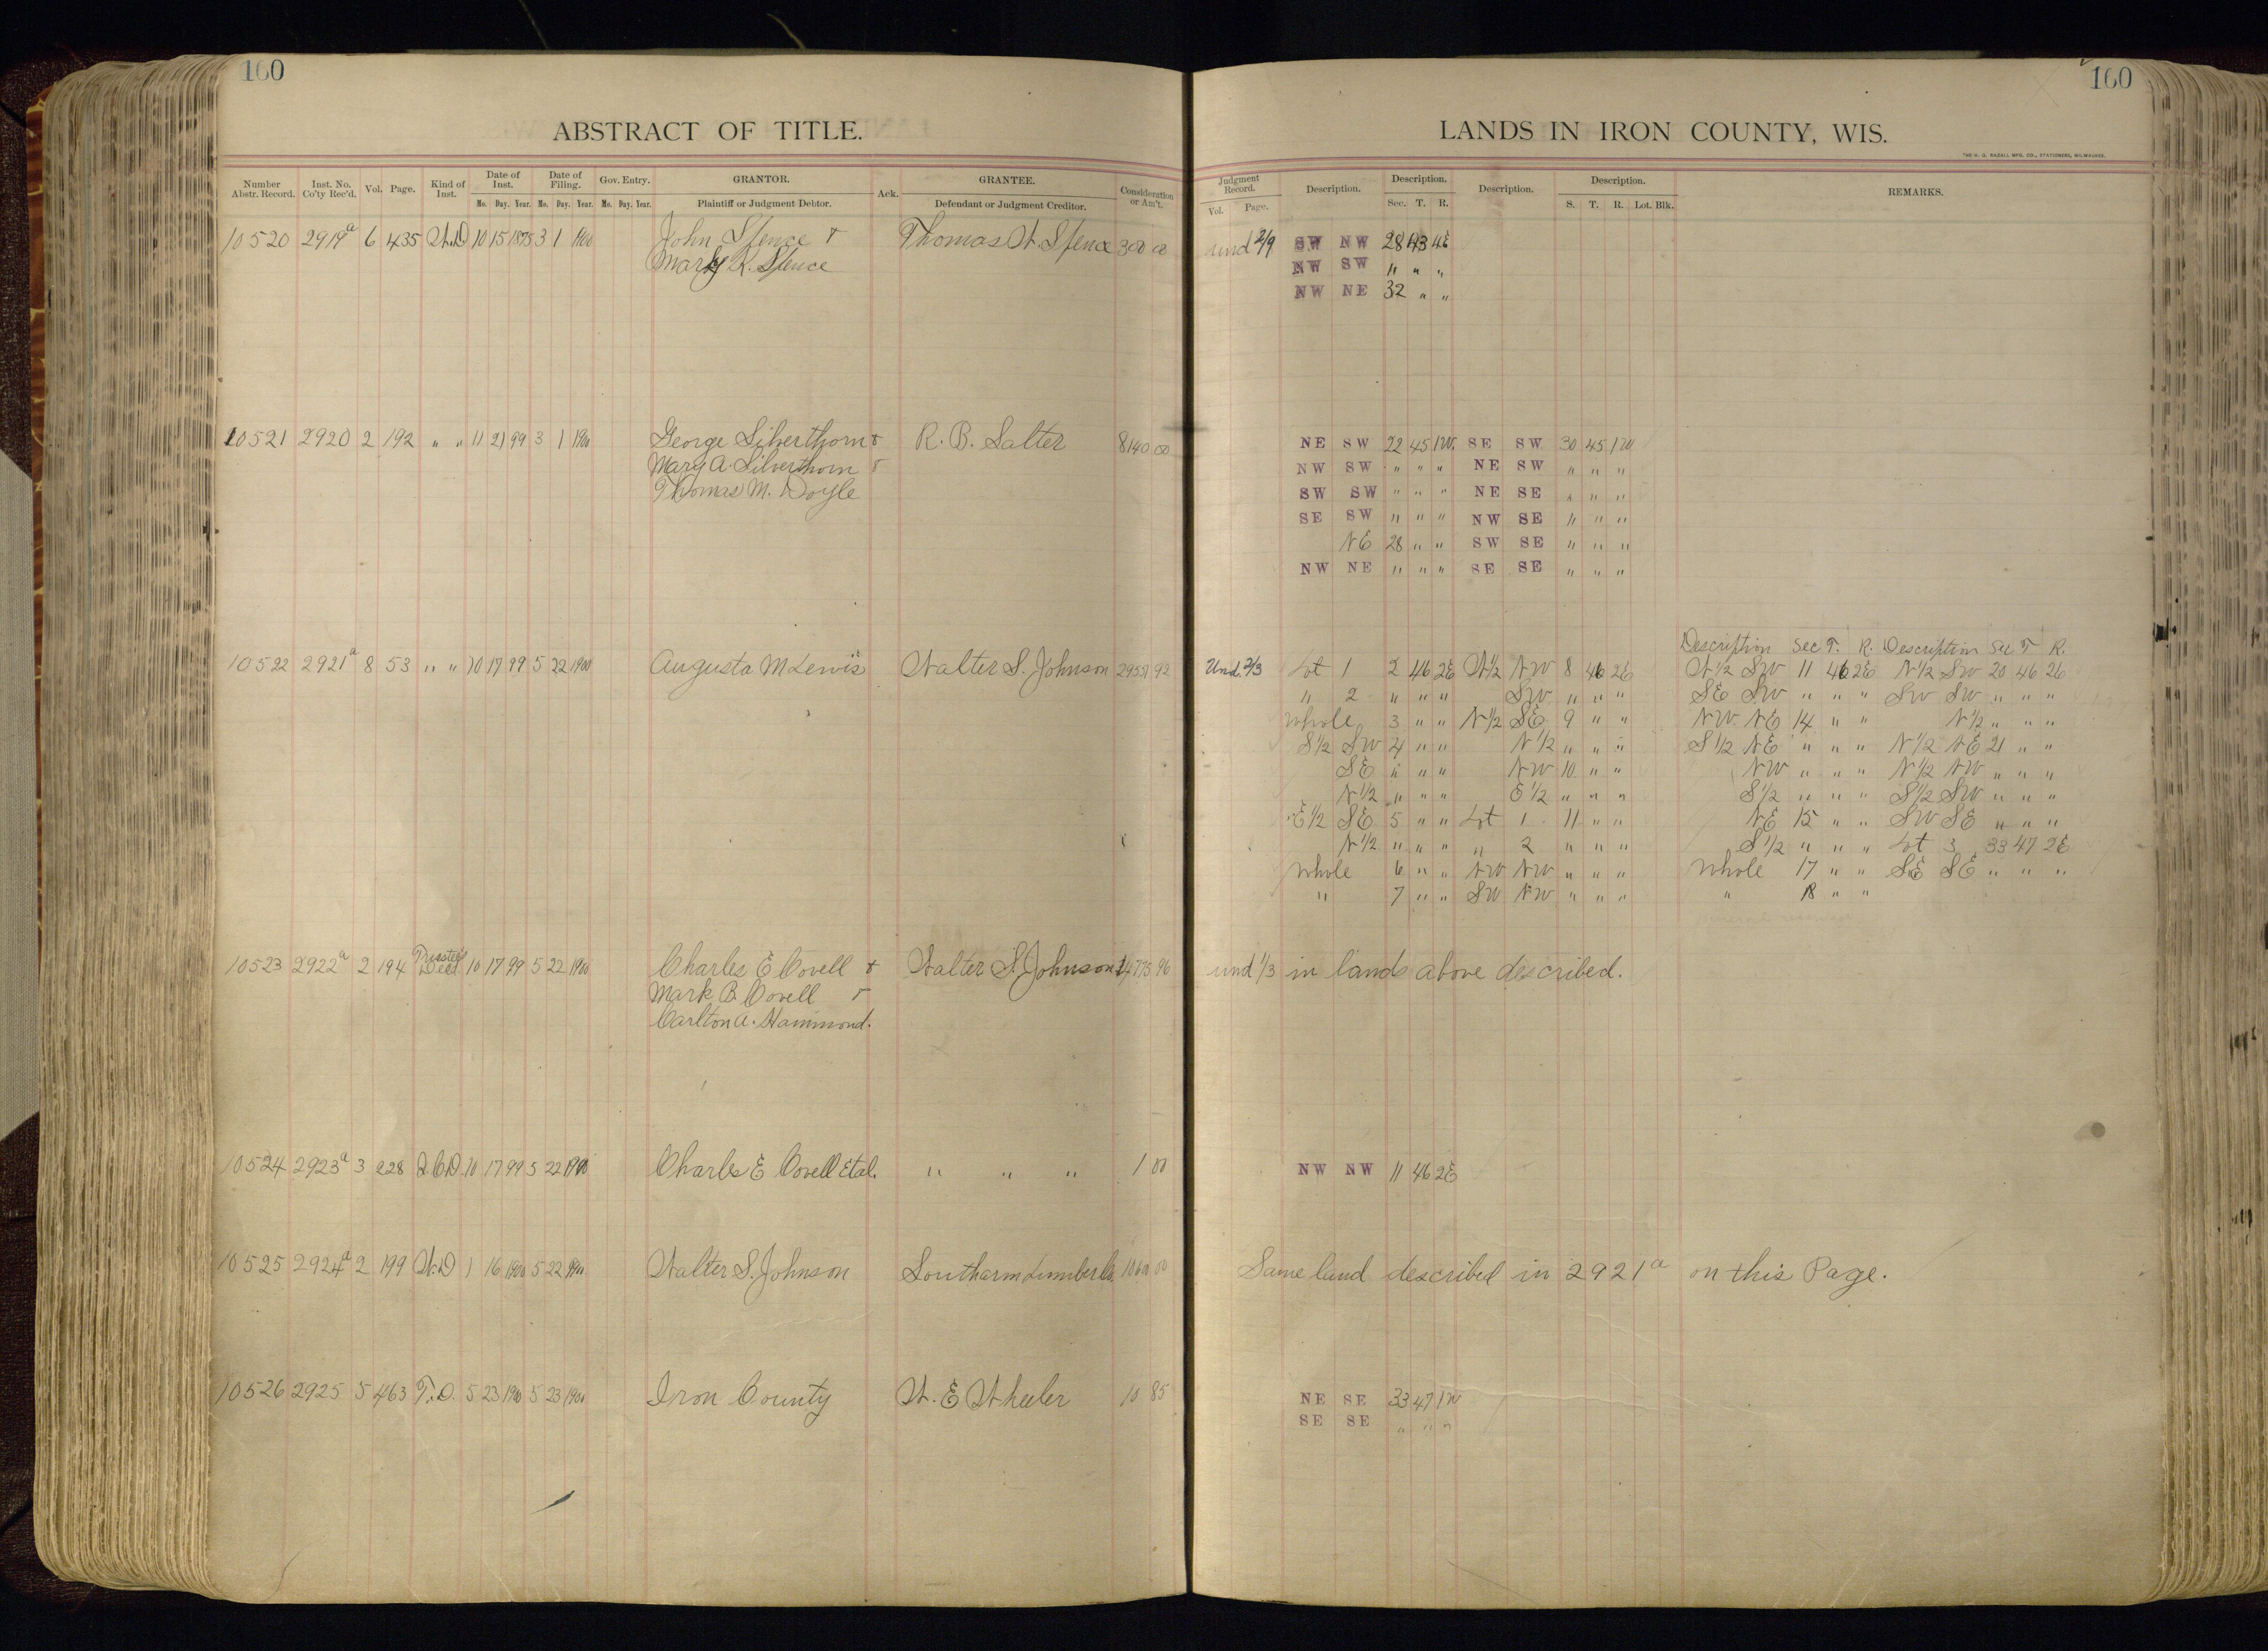 160
ABSTRACT OF TITLE.
Number Abstr. Record. Inst. No. Co'ty Rec'd. Vol. Page. Kind of Inst. Date of Inst. Date of Filing. Gov. Entry. GRANTOR. Ack. GRANTEE. Consideration or Am't.
Mo. Day. Year. Mo. Day. Year. Mo. Day. Year. Plaintiff or Judgment Debtor. Defendant or Judgment Creditor.
10520 2919a 6 435 W.D 10 15 1875 3 1 1900 John Spence & Thomas W. Spence 300 00
Mary R. Spence
10521 2920 2 192 " " 11 21 99 3 1 1900 George Silverthorn & R. B. Salter 8140 00
Mary A. Silverthorn &
Thomas M. Doyle
10522 2921a 8 53 " " 10 17 99 5 22 1900 Augusta M Lewis Walter S. Johnson 92
10523 2922a 2 194 Trustee's Deed 10 17 99 5 22 1900 Charles E Covell & Walter S. Johnson 96
Mark B. Covell &
Carlton A. Hammond.
10524 2923a 3 228 Q.C.D. 10 17 99 5 22 1900 Charles E Covell Etal. " " " 1 00
10525 2924a 2 199 W.D 1 16 1900 5 22 1900 Walter S. Johnson Lumber Co. 00
10526 2925 5 463 T.D. 5 23 1900 5 23 1900 Iron County W. E Wheeler 10 85
160
LANDS IN IRON COUNTY, WIS.
THE H. G. RAZALL MFG. CO., STATIONERS, MILWAUKEE.
Judgment Record. Description. Description. Description. Description. REMARKS.
Vol. Page. Sec. T. R. S. T. R. Lot. Blk.
und 2/9 SW NW 28 43 4E
NW SW " " "
NW NE 32 " "
NE SW 22 45 1W. SE SW 30 45 1W
NW SW " " " NE SW " " "
SW SW " " " NE SE " " "
SE SW " " " NW SE " " "
NE 28 " " SW SE " " "
NW NE " " " SE SE " " "
Description Sec T. R. Description Sec T R.
Und. 2/3 Lot 1 2 46 2E W1/2 NW 8 46 2E W1/2 SW 11 46 2E N1/2 SW 20 46 2E
" 2 " " " SW " " " SE SW " " " SW SW " " "
Whole 3 " " N1/2 SE 9 " " NW NE 14 " " N1/2 " " "
S1/2 SW 4 " " N1/2 " " " S1/2 NE " " " N1/2 NE 21 " "
SE " " " NW 10 " " NW " " " N1/2 NW " " "
N1/2 " " " E1/2 " " " S1/2 " " " S1/2 SW " " "
E1/2 SE 5 " " Lot 1 11 " " NE 15 " " SW SE " " "
N1/2 " " " " 2 " " " S1/2 " " " Lot 3 33 47 2E
Whole 6 " " NW NW " " " Whole 17 " " SE SE " " "
" 7 " " SW NW " " " " 18 " "
und 1/3 in lands above described.
NW NW 11 46 2E
Same land described in 2921a on this Page.
NE SE 33 47 1W
SE SE " " "